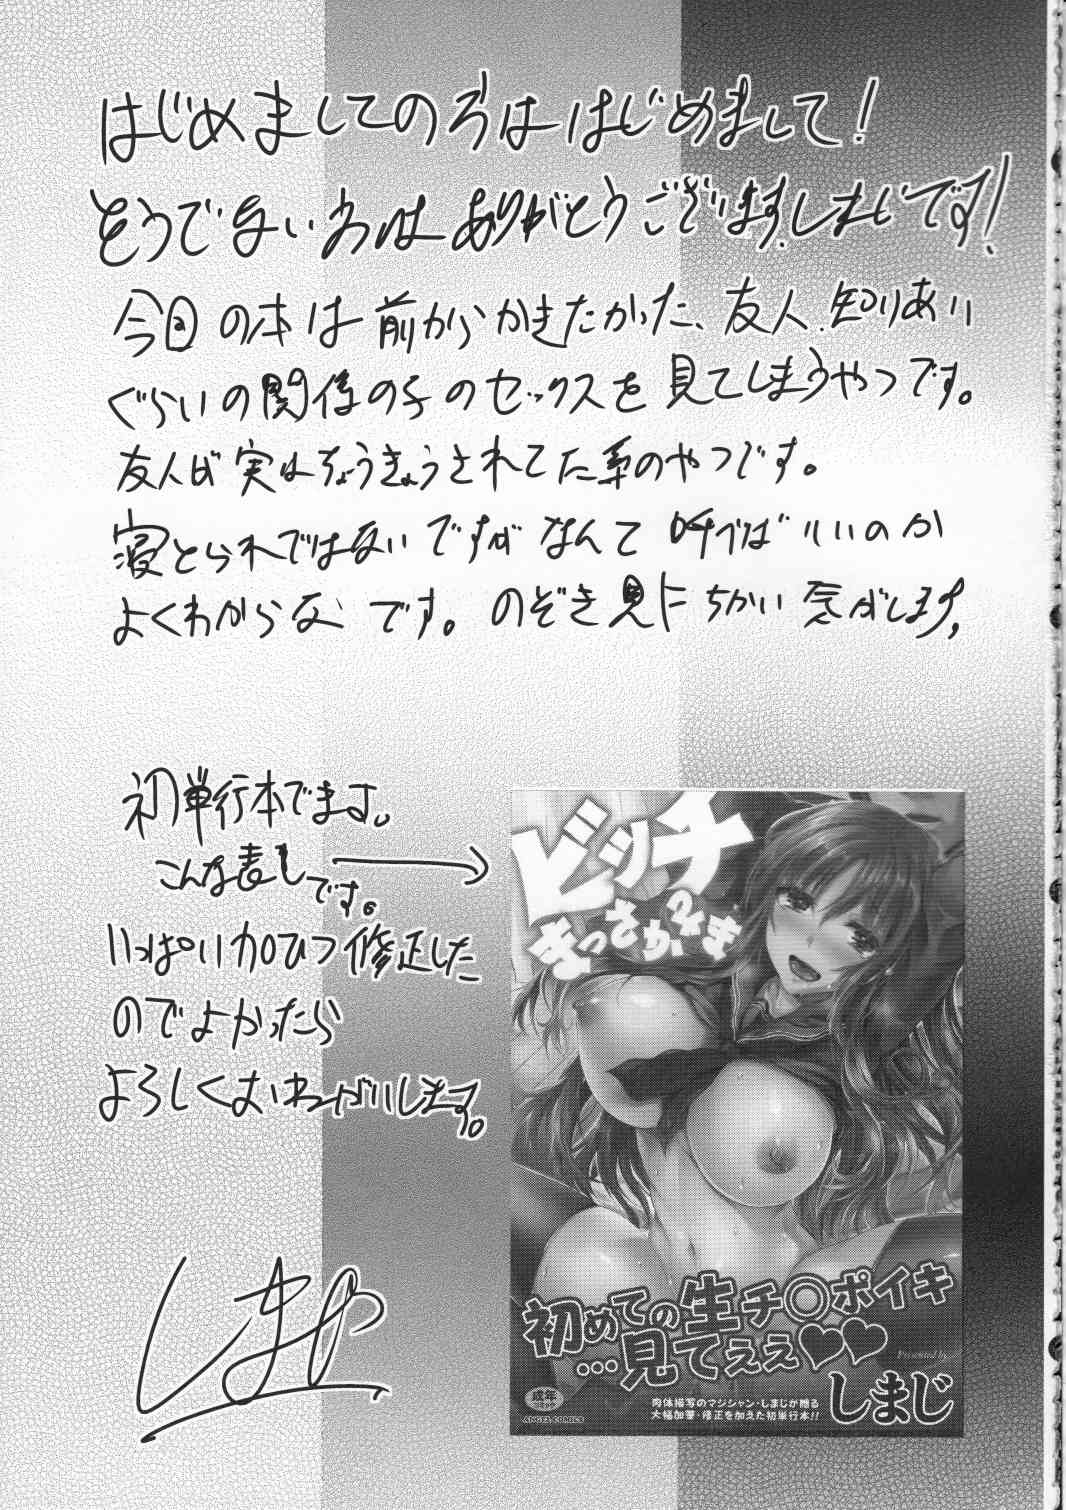 はじめましての方ははじめまして！
そうでない方はありがとうございます。しまじです！
今回の本は前からかきたかった、友人、知りあい
ぐらいの関係の子のセックスを見てしまうやつです。
友人が実はちょうきょうされてた系のやつです。
寝とられではないですがなんて呼べばいいのか
よくわからないです。のぞき見にちかい気がします。
初単行本でます。
こんな表しです。
いっぱい加ひつ修正した
のでよかったら
よろしくおねがいします。
しまじ
ビッチ
まっさかさま
初めての生チ◯ポイキ
…見てぇぇ♥♥
Presented by
しまじ
成年
コミック
ANGEL COMICS
肉体描写のマジシャン・しまじが贈る
大幅加筆・修正を加えた初単行本!!